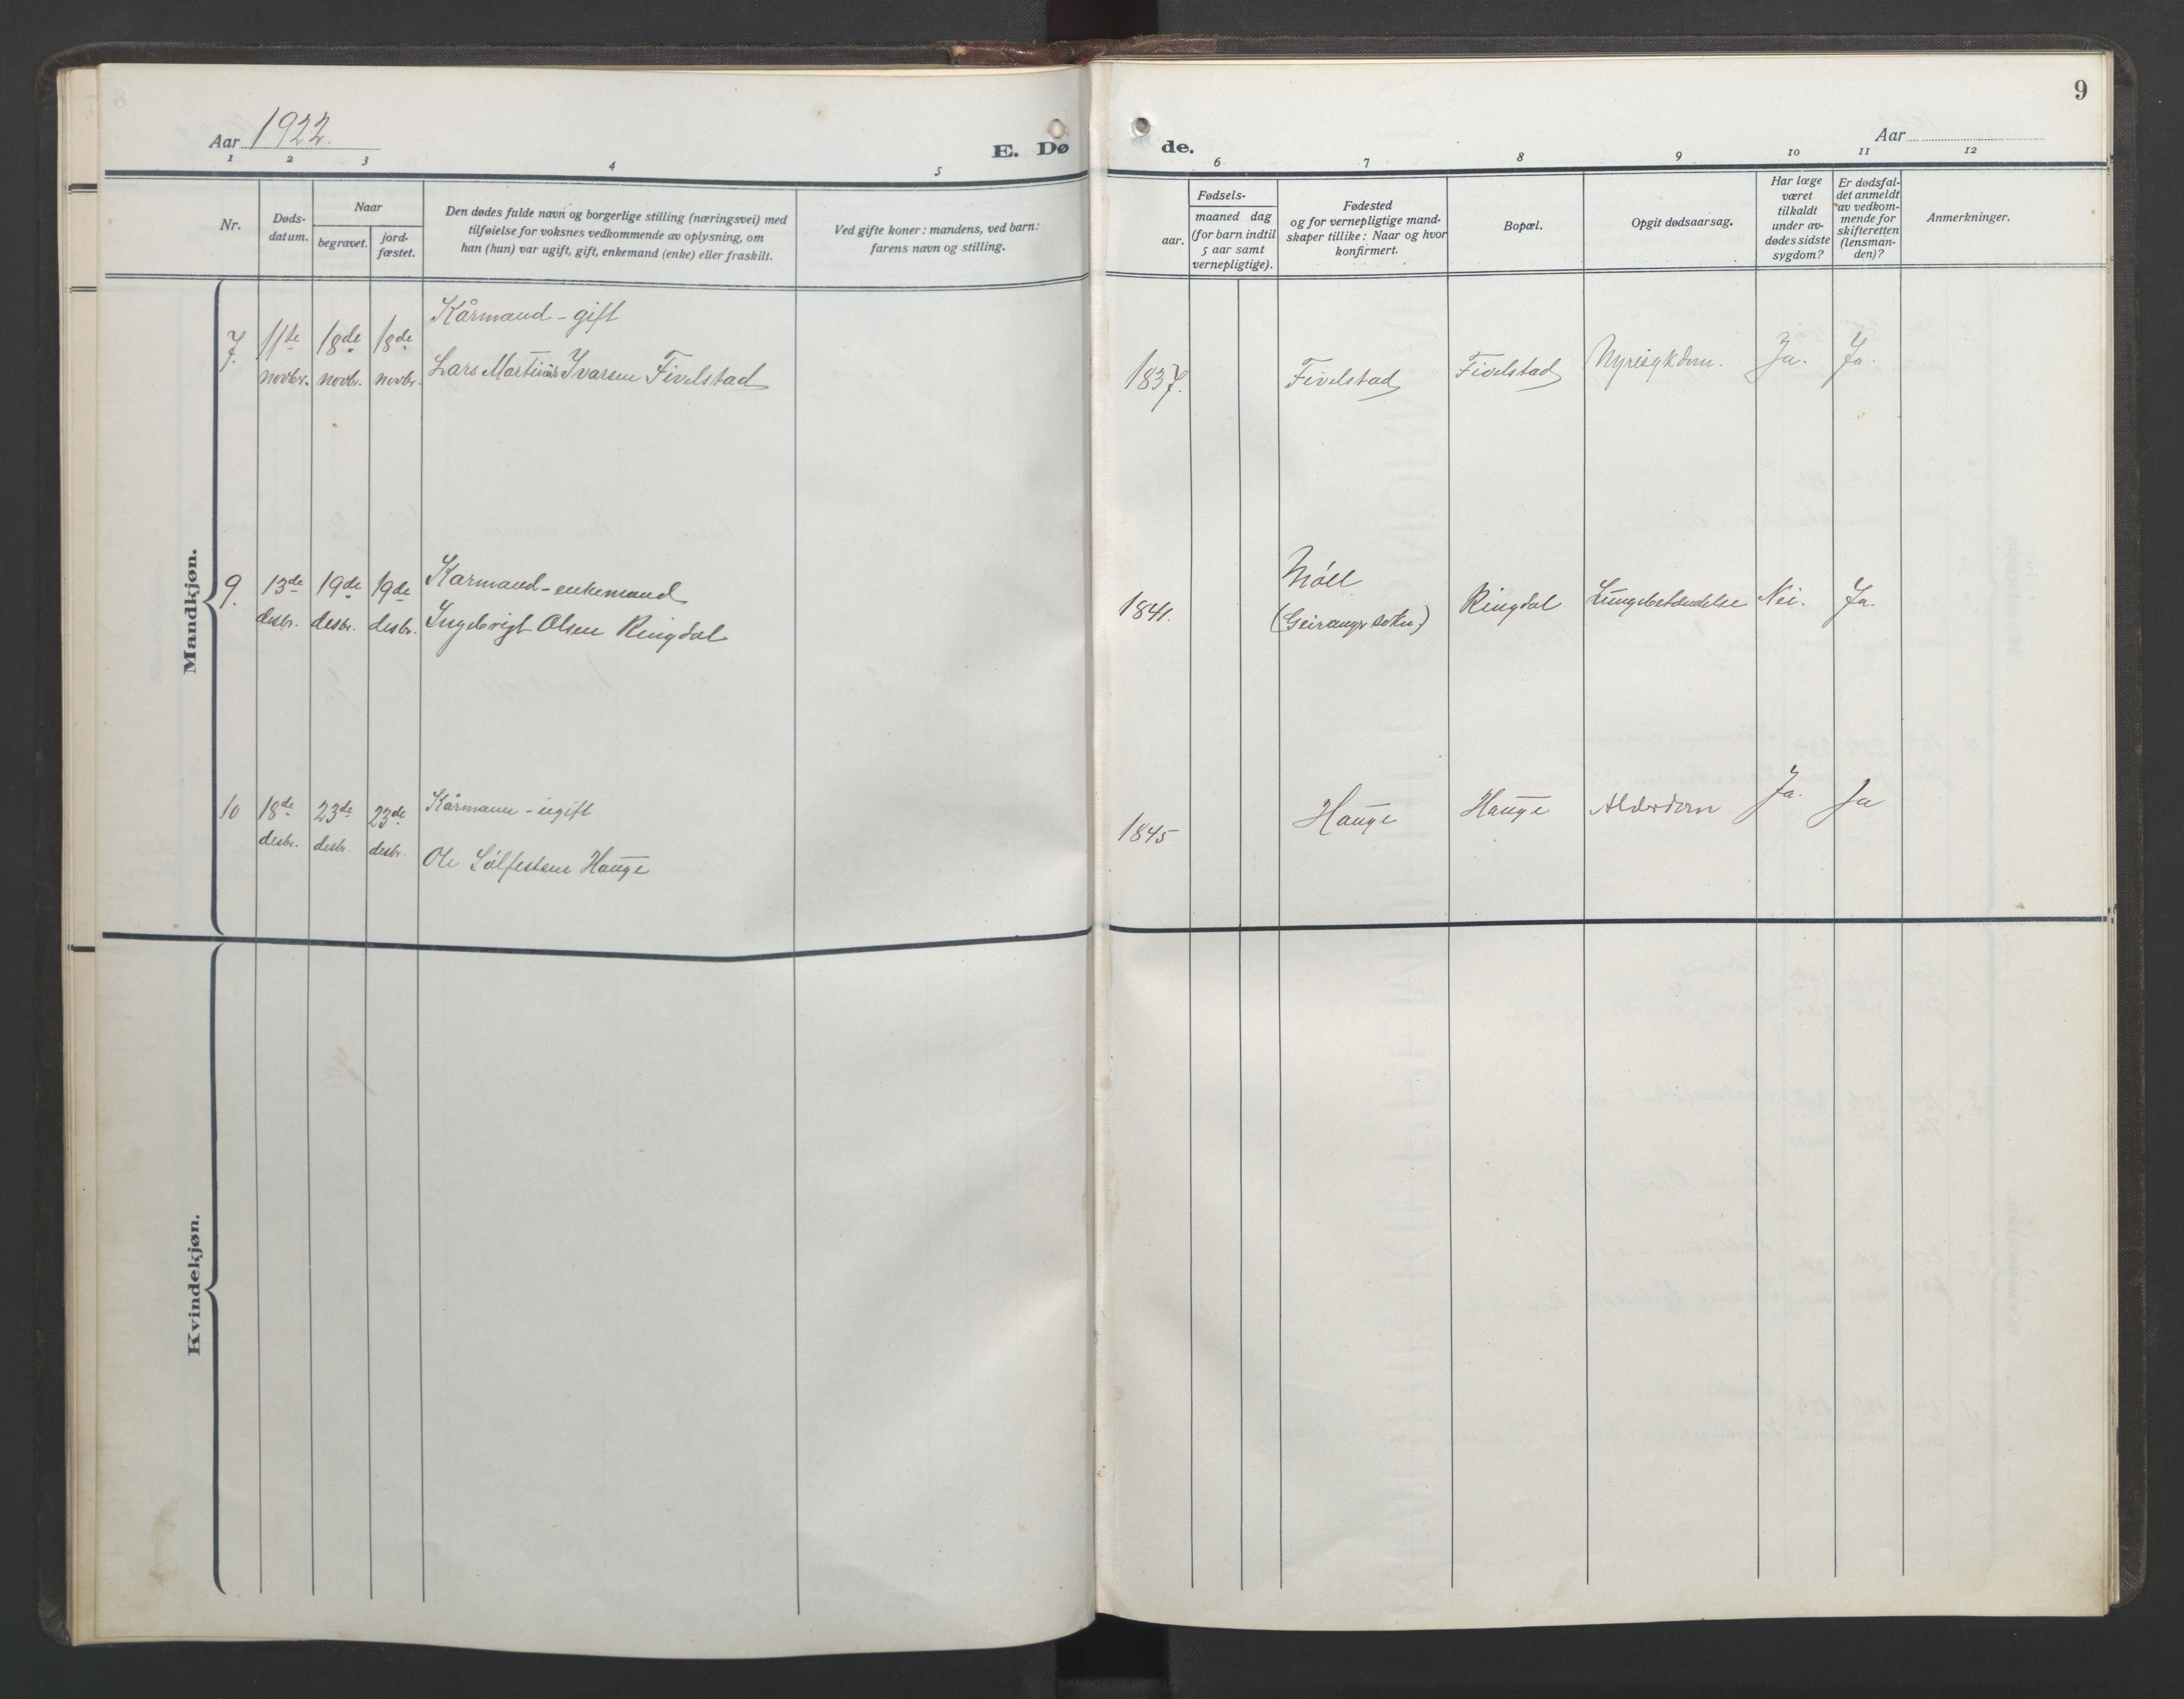 9
Aar 1922.
E. Dø de.
Aar
1 2 3 4 5 6 7 8 9 10 11 12
Nr.
Døds-
datum.
Naar
begravet.
jord-
fæstet.
Den dødes fulde navn og borgerlige stilling (næringsvei) med
tilføielse for voksnes vedkommende av oplysning, om
han (hun) var ugift, gift, enkemand (enke) eller fraskilt.
Ved gifte koner: mandens, ved barn:
farens navn og stilling.
aar.
Fødsels-
maaned dag
(for barn indtil
5 aar samt
vernepligtige).
Fødested
og for vernepligtige mand-
skaper tillike: Naar og hvor
konfirmert.
Bopæl.
Opgit dødsaarsag.
Har læge
været
tilkaldt
under av-
dødes sidste
sygdom?
Er dødsfal-
det anmeldt
av vedkom-
mende for
skifteretten
(lensman-
den)?
Anmerkninger.
Mandkjøn.
Kårmand - gift
7. 11te 18de 18de
novbr. novbr. novbr. Lars Martinus Ivarsen Fivelstad 1837. Fivelstad Fivelstad Nyresykdom. Ja. Ja.
9. 13de 19de 19de Karmand - enkemand Möll
desbr. desbr. desbr. Ingebrigt Olsen Ringdal 1841. (Geiranger sokn) Ringdal Lungebetændelse Nei. Ja.
10 18de 23de 23de Kårmann - ugift
desbr. desbr. desbr. Ole Sølfestsen Hauge 1845 Hauge Hauge Alderdom Ja. Ja
Kvindekjøn.